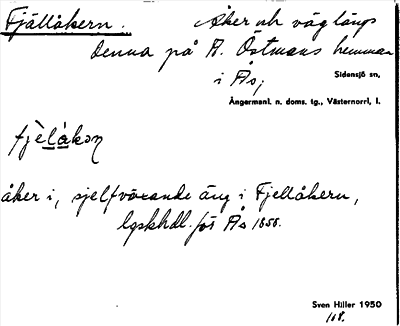 Fjällåkern.. Åker och väg längs
denna på A. Östmans hemman
i Ås,
Sidensjö sn,
Ångermanl. n. doms. tg., Västernorrl, l.
åker i, sjelfväxande äng i Fjellåkern,
lgskhdl. för Ås 1858.
Sven Hiller 1950